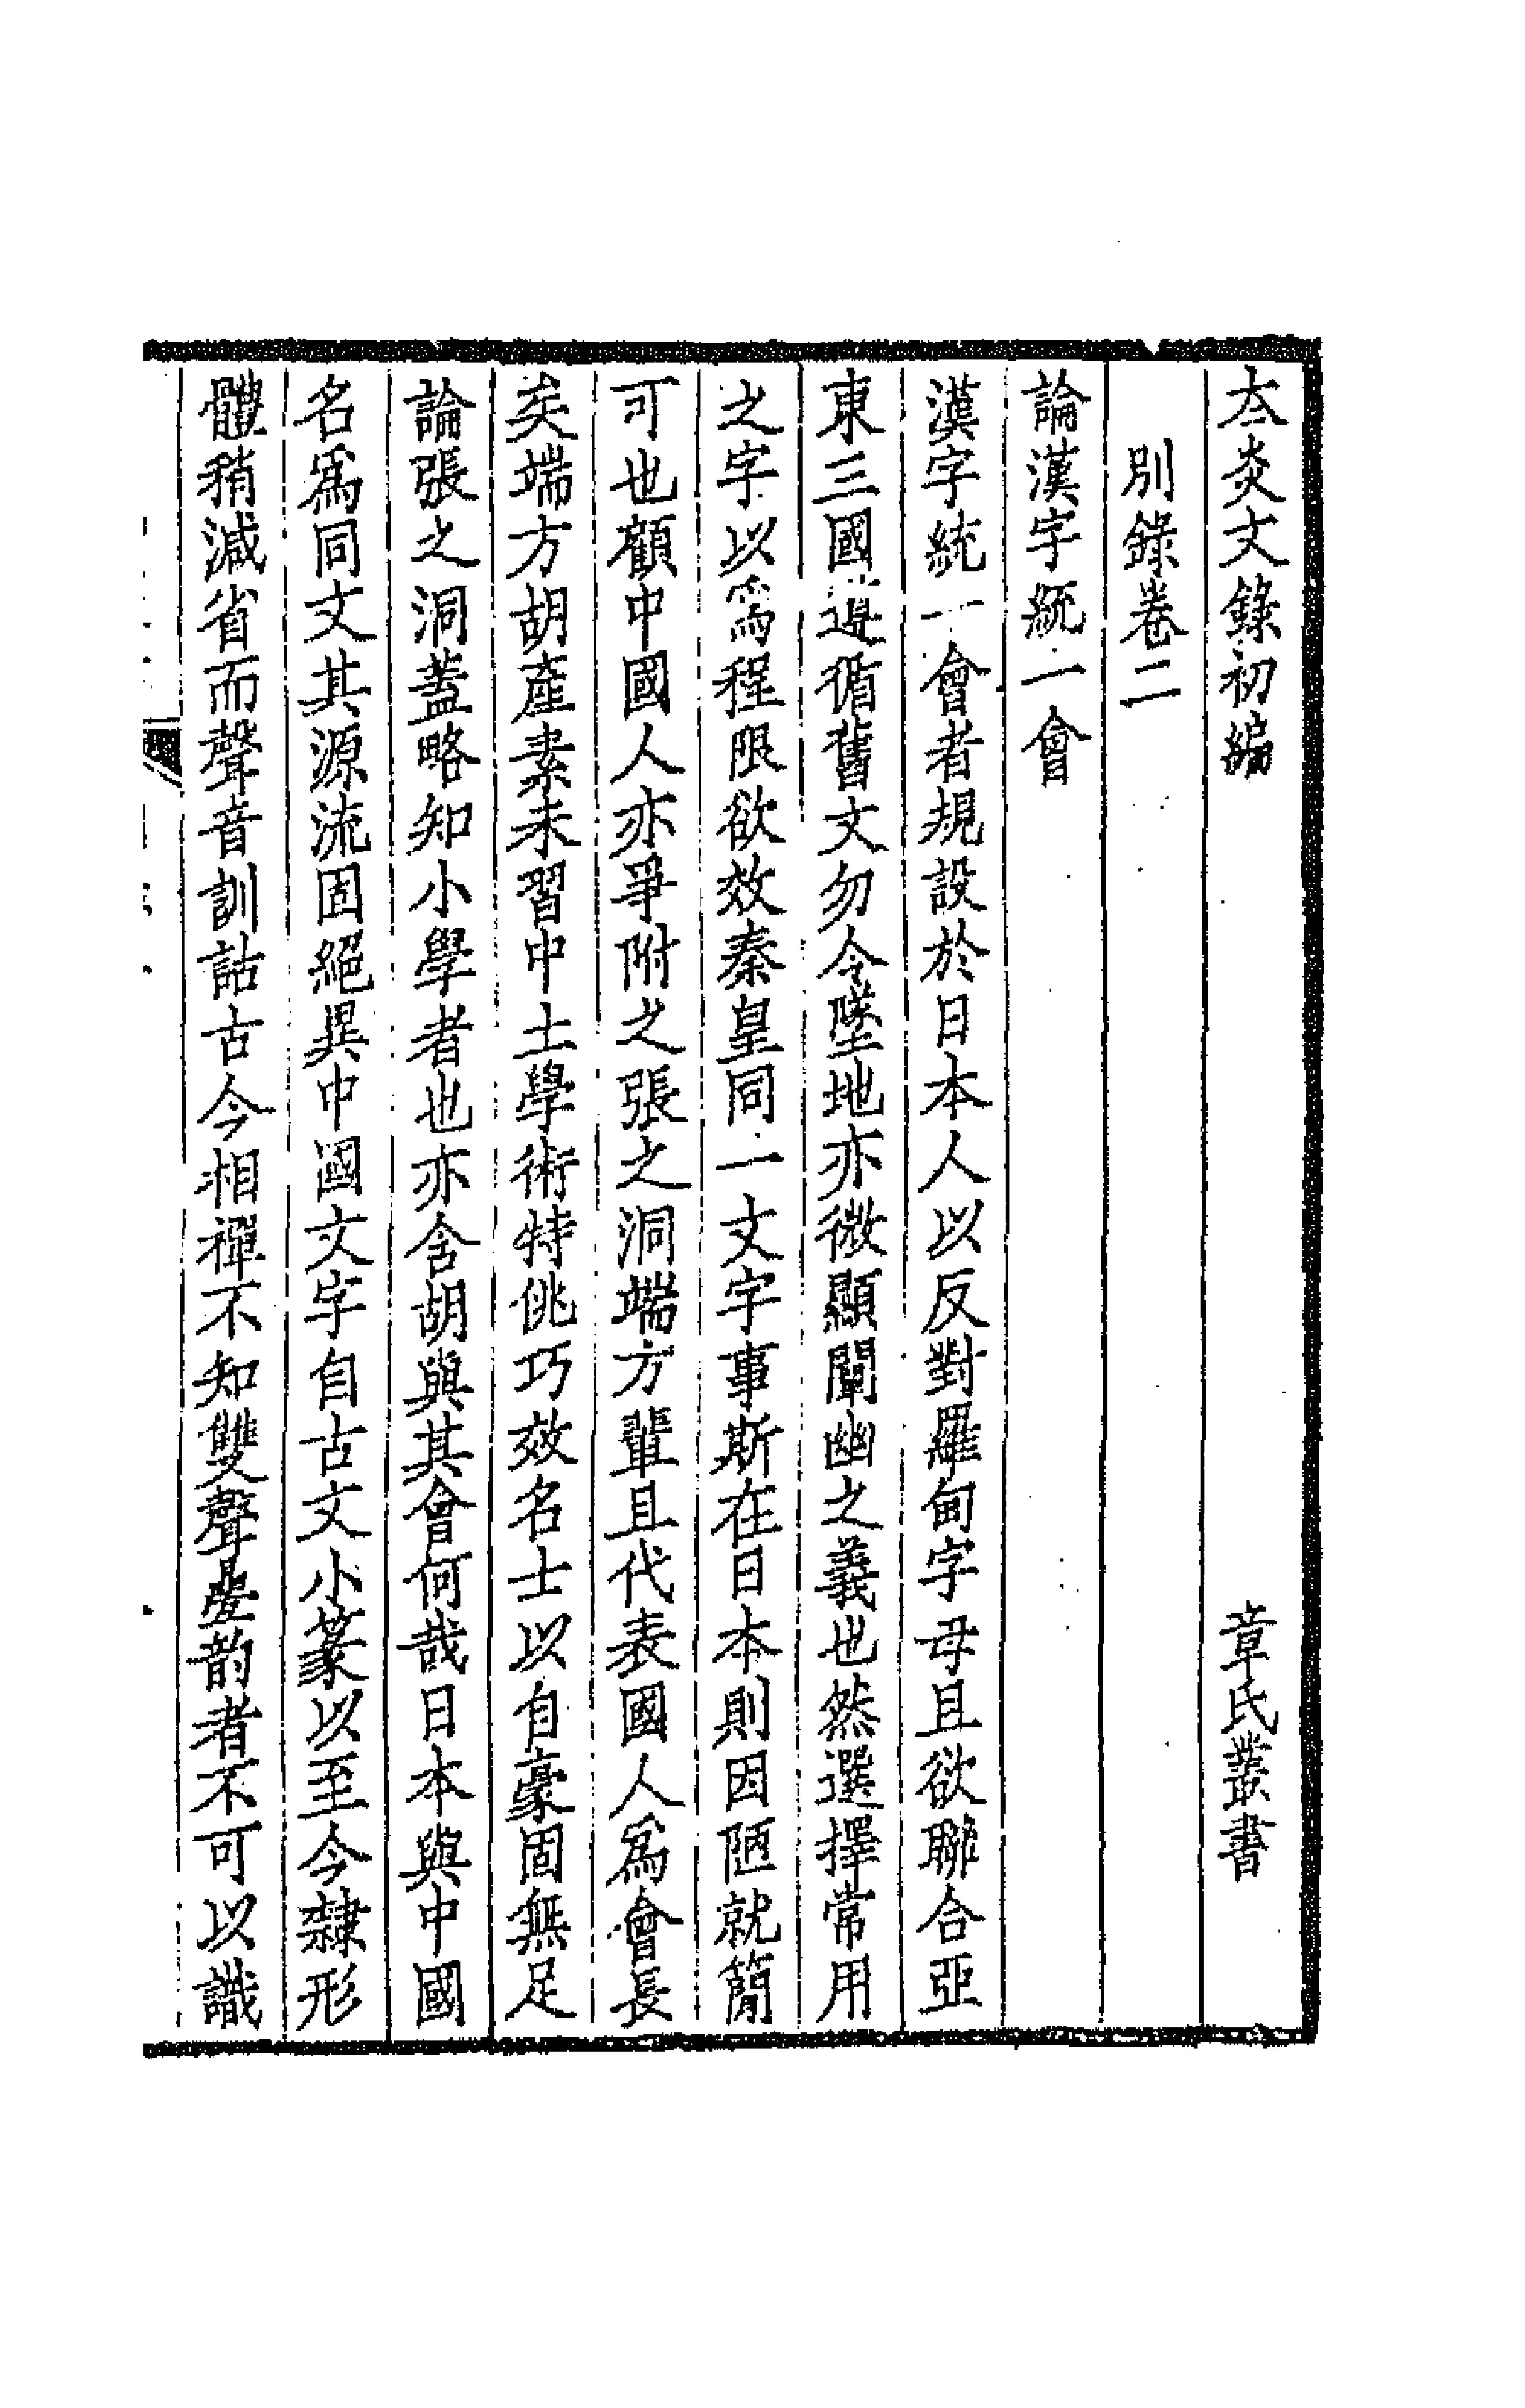 太炎文錄初編　章氏叢書
別錄卷二
論漢字統一會
漢字統一會者規設於日本人以反對羅甸字母且欲聯合亞
東三國遵循舊文勿令墜地亦微顯闡幽之義也然選擇常用
之字以爲程限欲效秦皇同一文字事斯在日本則因陋就簡
可也顧中國人亦爭附之張之洞端方輩且代表國人爲會長
矣端方胡產素未習中土學術特佻巧效名士以自豪固無足
論張之洞蓋略知小學者也亦含胡與其會何哉日本與中國
名爲同文其源流固絕異中國文字自古文小篆以至今隸形
體稍減省而聲音訓詁古今相禪不知雙聲疊韵者不可以識